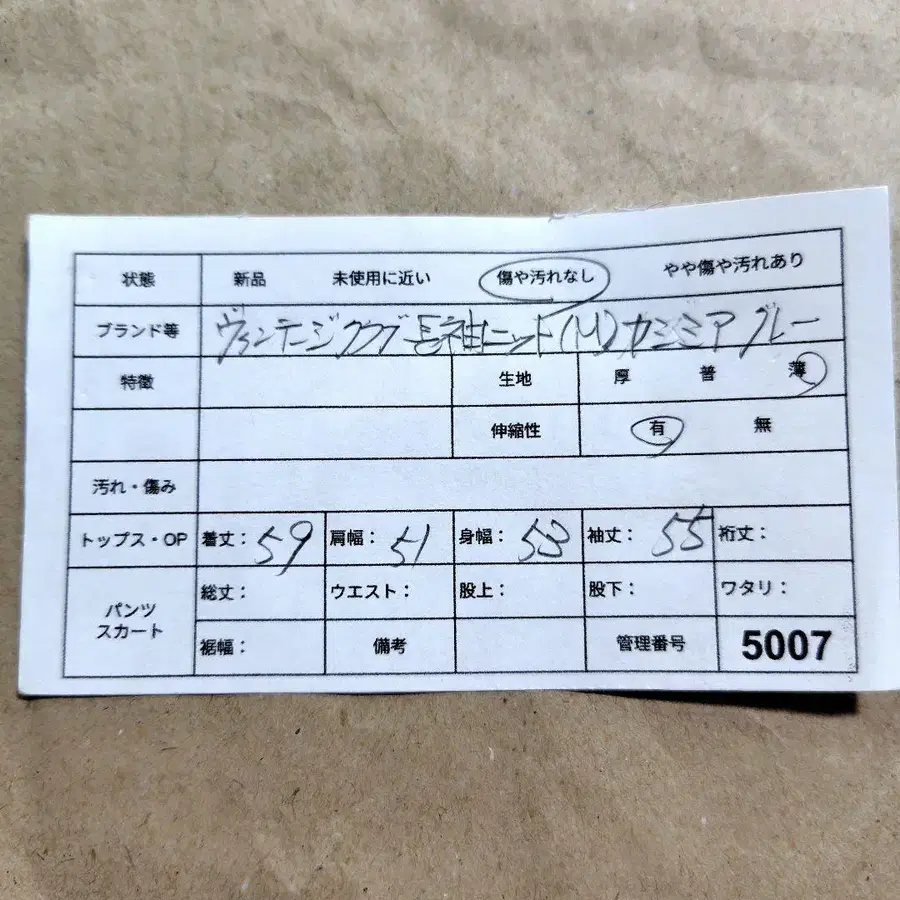 状態 新品 未使用に近い 傷や汚れなし やや傷や汚れあり
ブランド等 ヴァンテージクラブ 長袖ニット(M)カシミア グレー
特徴 生地 厚 普 薄
伸縮性 有 無
汚れ・傷み
トップス・OP 着丈:59 肩幅:51 身幅:53 袖丈:55 裄丈:
パンツ スカート 総丈: ウエスト: 股上: 股下: ワタリ:
裾幅: 備考 管理番号 5007